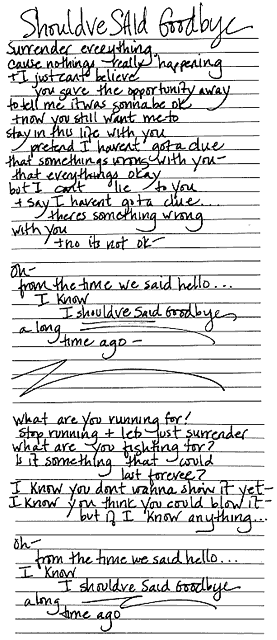 Shouldve SAid Goodbye
Surrender everything
cause nothings really happening
+ I just cant believe
you save the opportunity away
to tell me it was gonna be ok
+ now you still want me to
stay in this life with you
pretend I havent got a clue
that somethings wrong with you-
that everythings okay
but I cant lie to you
+ say I havent got a clue...
theres something wrong
with you
+ no its not ok-
oh-
from the time we said hello...
I know
I shouldve said Goodbye
a long
time ago -
what are you running for?
stop running + lets just surrender
what are you fighting for?
is it something that could
last forever?
I know you dont wanna show it yet-
I know you think you could blow it-
but if I know anything...
oh-
from the time we said hello...
I know
I shouldve Said Goodbye
a long
time ago